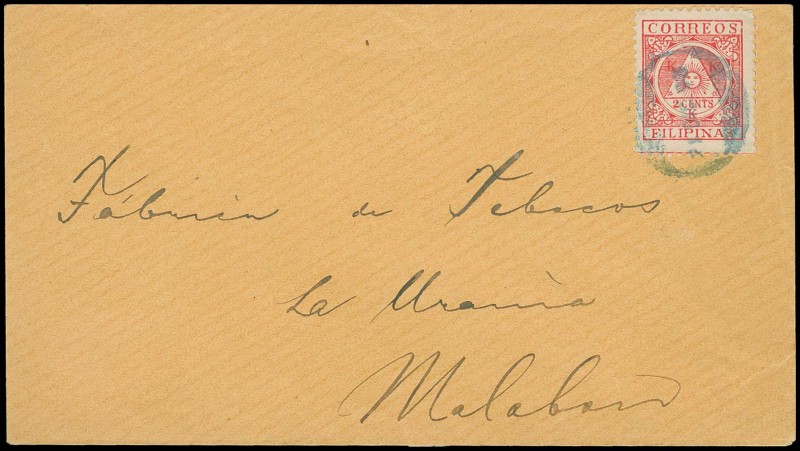 CORREOS
K K
2 CENTS
K
FILIPINAS
Fábrica de Tabacos
La Urania
Malabon